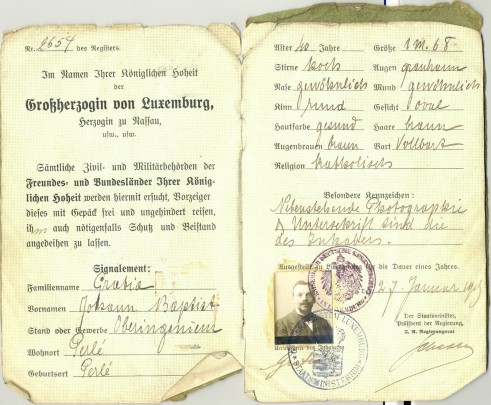 Nr. 2654 des Registers.
Im Namen Ihrer Königlichen Hoheit
der
Großherzogin von Luxemburg,
Herzogin zu Nassau,
usw., usw.
Sämtliche Zivil- und Militärbehörden der
Freundes- und Bundesländer Ihrer König-
lichen Hoheit werden hiermit ersucht, Vorzeiger
dieses mit Gepäck frei und ungehindert reisen,
ihm auch nötigenfalls Schutz und Beistand
angedeihen zu lassen.
Signalement:
Familienname
Vornamen Johann Baptist
Stand oder Gewerbe Oberingenieur
Wohnort Perlé
Geburtsort Perlé
Alter 40 Jahre Größe 1 m. 68
Stirne hoch Augen graubraun
Nase gewöhnlich Mund gewöhnlich
Kinn rund Gesicht oval
Hautfarbe gesund Haare braun
Augenbrauen braun Bart Vollbart
Religion katholisch
Besondere Kennzeichen:
Nebenstehende Photographie
& Unterschrift sind die
des Inhabers.
Ausgestellt zu Luxemburg für die Dauer eines Jahres.
27 Januar
Der Staatsminister,
Präsident der Regierung,
Unterschrift des Inhabers